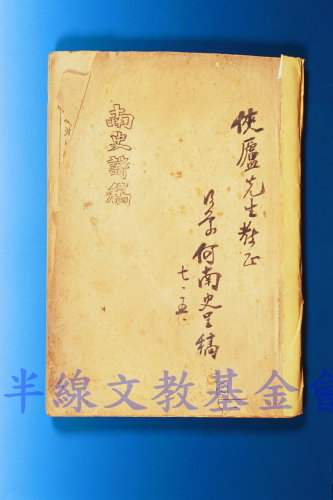 俠廬先生教正
何南史呈稿
七、五、
南史詩稿
半線文教基金會